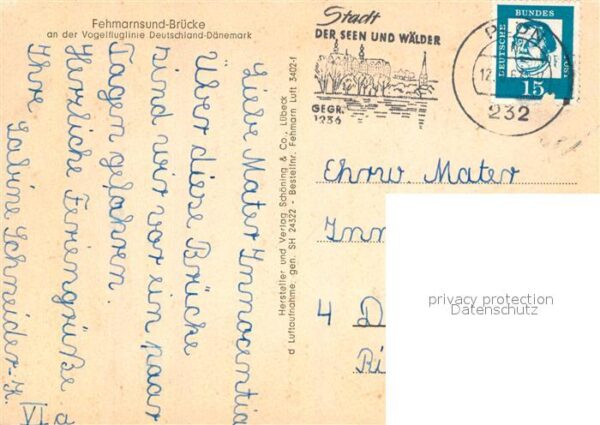 Fehmarnsund-Brücke
an der Vogelfluglinie Deutschland-Dänemark
Liebe Mater Innocentia
Über diese Brücke
sind wir vor ein paar
Tagen gefahren.
Herzliche Feriengrüße
Ihre
Sabine Schneider-K.
VI a
Hersteller und Verlag Schöning & Co., Lübeck
d Luftaufnahme, gen. SH 24322 Bestellnr. Fehmarn Luft 3402-f
Stadt
DER SEEN UND WÄLDER
GEGR.
1236
232
DEUTSCHE
BUNDES
POST
15
Ehrw. Mater
Inn
4 D
Ri
privacy protection
Datenschutz